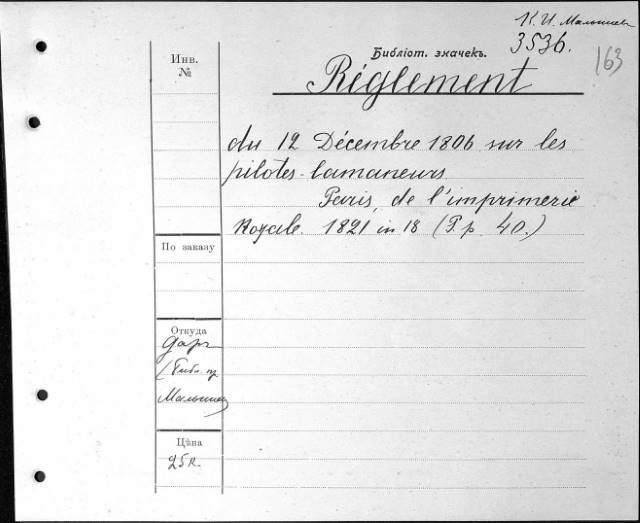 К. И. Малышев
3536.
163
Инв.
№
Библіот. значекъ.
Réglement
du 12 Décembre 1806 sur les
pilotes-lamaneurs
Paris, de l'imprimerie
Royale. 1821 in 18 (P.p. 40.)
По заказу
Откуда
Даръ
Библ. пр
Малышев
Цѣна
25 к.